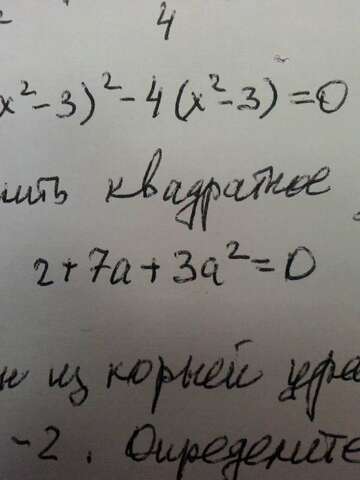 2 4
x² - 3)² - 4(x² - 3) = 0
ить квадратное
2 + 7a + 3a² = 0
н из корней ура
-2. Определите